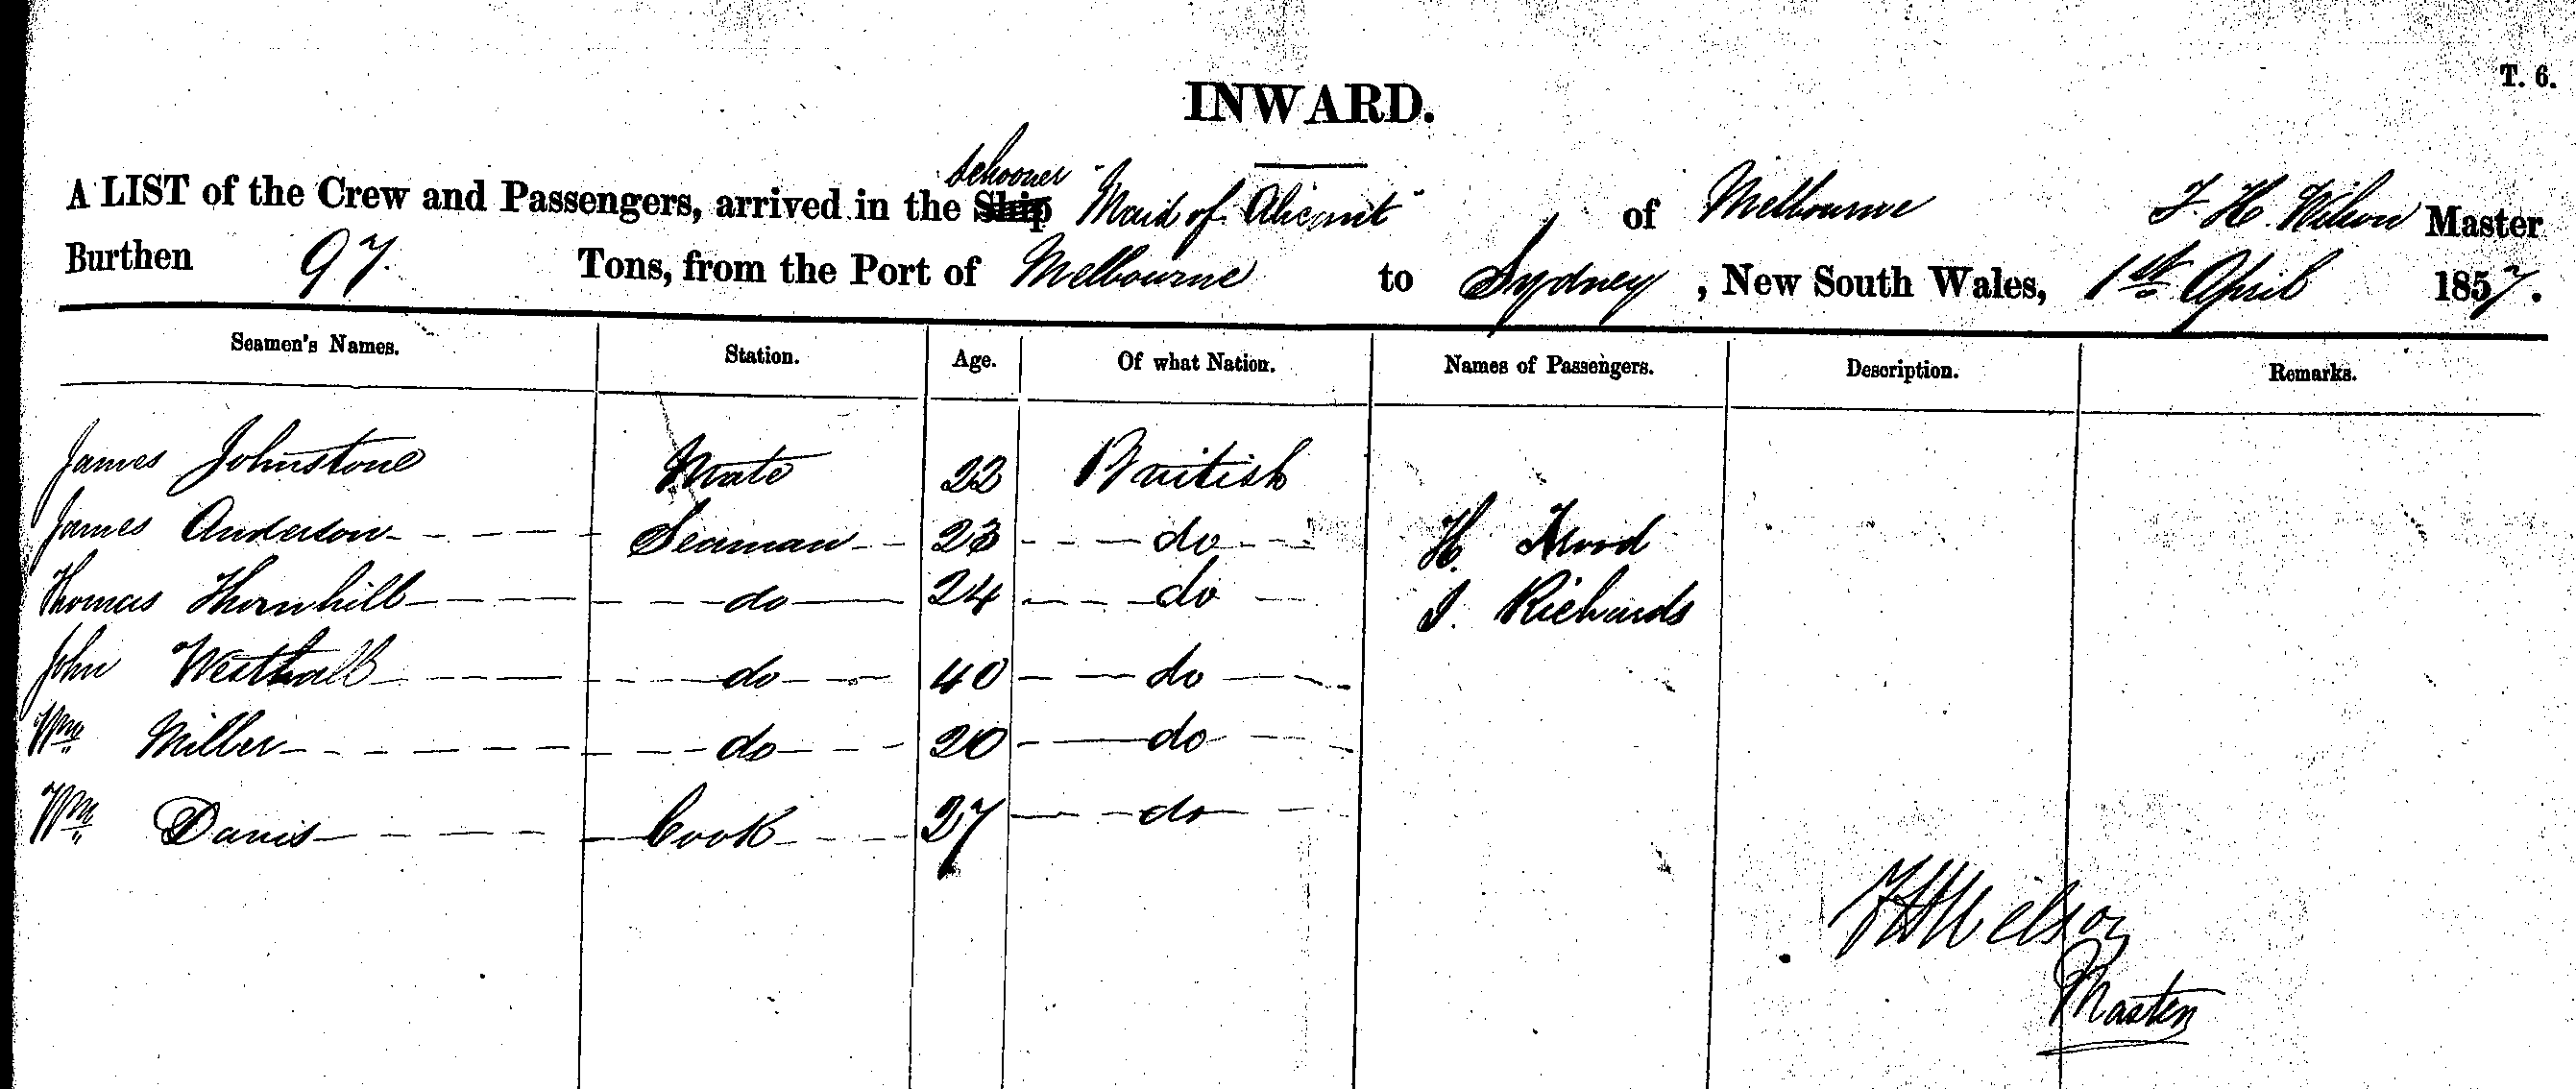 T. 6.
INWARD.
Schooner
A LIST of the Crew and Passengers, arrived in the Ship "Maid of Alicant" of Melbourne F. H. Wilson Master
Burthen 97. Tons, from the Port of Melbourne to Sydney, New South Wales, 1st April 1857.
Seamen's Names. Station. Age. Of what Nation. Names of Passengers. Description. Remarks.
James Johnstone Mate 22 British
James Anderson Seaman 23 do H.
Thomas Thornhill do 24 do J. Richards
John Westhall do 40 do
Wm Miller do 20 do
Wm Davis Cook 27 do
F H Wilson
Master